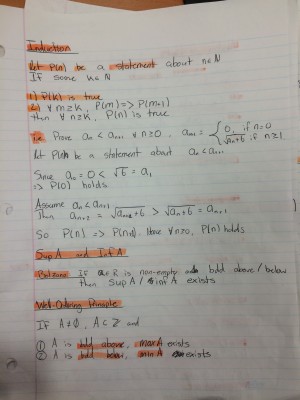 Induction
Let P(n) be a statement about n∈N
If some k∈N
1) P(k) is true
2) ∀ m≥k, P(m) => P(m+1)
then ∀ n≥k, P(n) is true
i.e. Prove aₙ < aₙ₊₁ ∀ n≥0, aₙ₊₁ = { 0, if n=0
√aₙ+6, if n≥1
Let P(n) be a statement about aₙ<aₙ₊₁
Since a₀ = 0 < √6 = a₁
=> P(0) holds
Assume aₙ<aₙ₊₁
Then aₙ₊₂ = √aₙ₊₁+6 > √aₙ+6 = aₙ₊₁
So P(n) => P(n+1). Hence ∀n≥0, P(n) holds
Sup A and Inf A
Bolzano: If A⊂R is non-empty bdd above/below
then Sup A / inf A exists
Well-Ordering Principle
If A≠∅, A⊂Z and
① A is bdd above, max A exists
② A is bdd below, min A exists